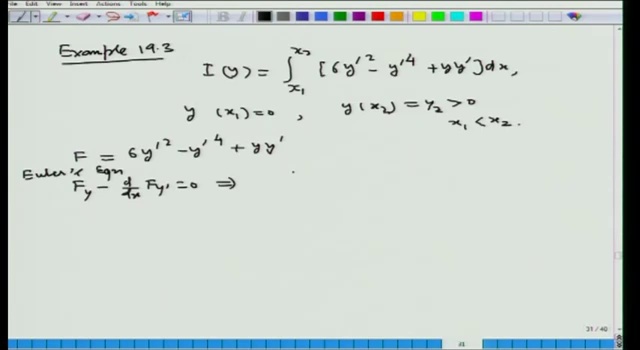 Edit View Insert Actions Tools Help
Example 19.3
I(y) = ∫_{x₁}^{x₂} [6y'² - y'⁴ + yy']dx,
y(x₁)=0, y(x₂) = y₂ > 0
x₁ < x₂.
F = 6y'² - y'⁴ + yy'
Euler's Eqn
F_y - d/dx F_y' = 0 ⇒
31 / 40